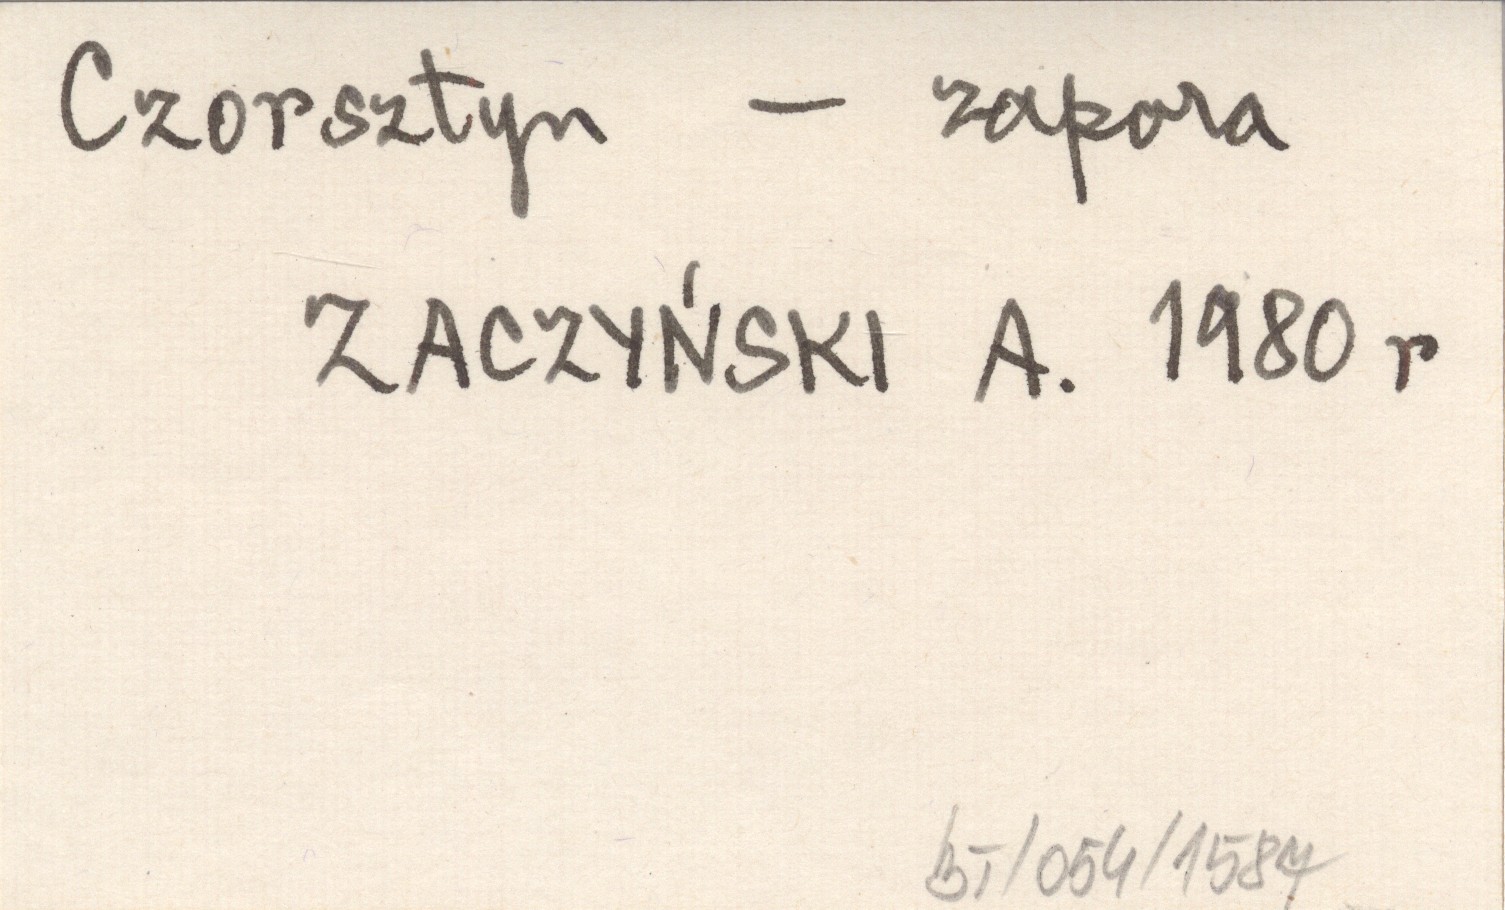 Czorsztyn - zapora
ZACZYŃSKI A. 1980 r
BT/054/1587